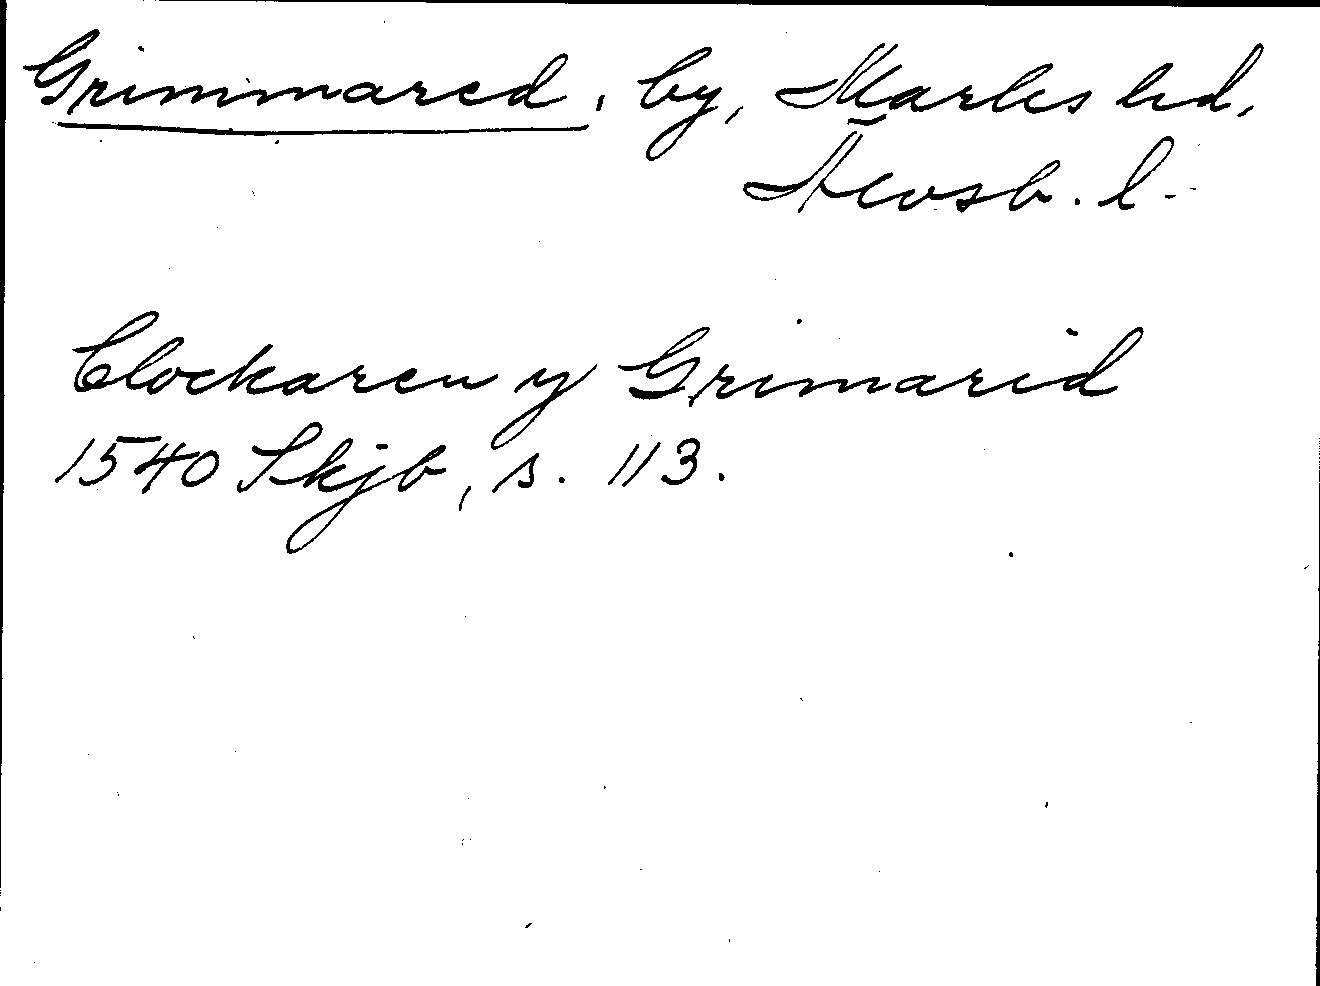 Grimmared, by, Marks hd,
Älvsb. l.
Clockaren y Grimarid
1540 Skjb, s. 113.